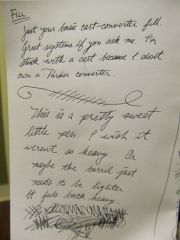 Fill
Just your basic cart-converter fill.
Great system if you ask me. I'm
stuck with a cart because I don't
own a Parker converter.
This is a pretty sweet
little pen. I wish it
werent so heavy. Or
maybe the barrel just
needs to be lighter
It feels back heavy.